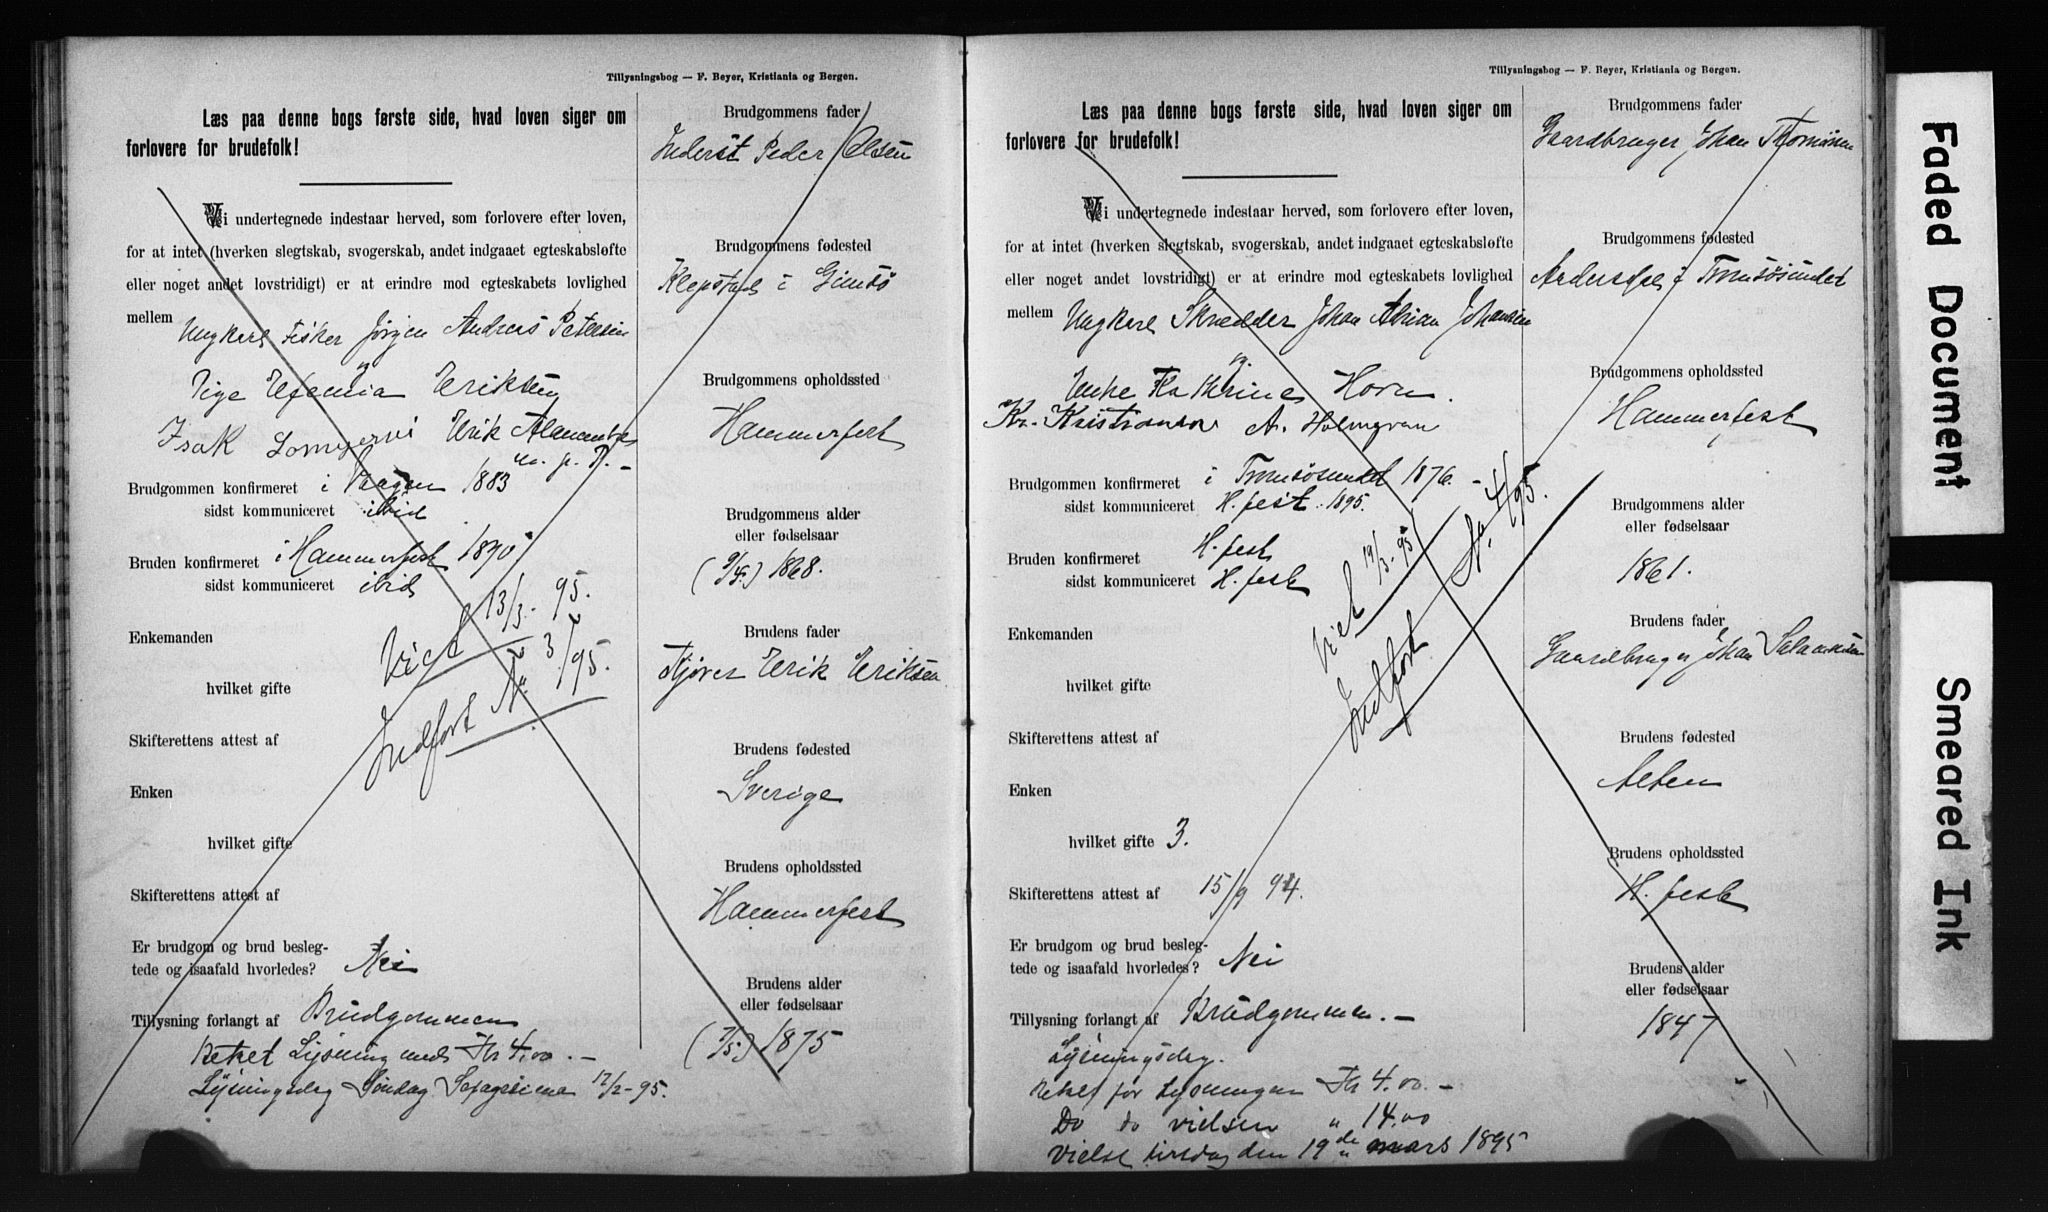 Tillysningsbog — F. Beyer, Kristiania og Bergen.
Læs paa denne bogs første side, hvad loven siger om
forlovere for brudefolk!
Vi undertegnede indestaar herved, som forlovere efter loven,
for at intet (hverken slegtskab, svogerskab, andet indgaaet egteskabsløfte
eller noget andet lovstridigt) er at erindre mod egteskabets lovlighed
mellem
Ungkarl Fisker Jørgen Andreas Petersen
og
Pige Efemia Eriksen
Isak Erik
m. p. P. –
Brudgommen konfirmeret i Vaagan 1883
sidst kommuniceret ibid
Bruden konfirmeret i Hammerfest 1890
sidst kommuniceret ibid
Viet 13/3 - 95.
Enkemanden
Indført No 3/95.
hvilket gifte
Skifterettens attest af
Enken
hvilket gifte
Skifterettens attest af
Er brudgom og brud besleg-
tede og isaafald hvorledes? Nei
Tillysning forlangt af Brudgommen
Betalt Lysning med Kr 4.00. –
Lysningsdag Søndag 17/2 - 95.
Brudgommens fader
Inderst Peder Olsen
Brudgommens fødested
Klepstad i Gimsø
Brudgommens opholdssted
Hammerfest
Brudgommens alder
eller fødselsaar
1868.
Brudens fader
Erik Eriksen
Brudens fødested
Sverige
Brudens opholdssted
Hammerfest
Brudens alder
eller fødselsaar
(7/5) 1875
Tillysningsbog — F. Beyer, Kristiania og Bergen.
Læs paa denne bogs første side, hvad loven siger om
forlovere for brudefolk!
Vi undertegnede indestaar herved, som forlovere efter loven,
for at intet (hverken slegtskab, svogerskab, andet indgaaet egteskabsløfte
eller noget andet lovstridigt) er at erindre mod egteskabets lovlighed
mellem
Ungkarl Skrædder Johan Adrian Johansen
og
Enke Kathrine Horn.
Kr. Kristiansen A. Holmgren
Brudgommen konfirmeret i Tromsøsundet 1876. –
sidst kommuniceret H. fest 1895.
Bruden konfirmeret H. fest
sidst kommuniceret H. fest
Viet 19/3 - 95
Indført No 4/95.
Enkemanden
hvilket gifte
Skifterettens attest af
Enken
hvilket gifte 3.
Skifterettens attest af 15/9 94.
Er brudgom og brud besleg-
tede og isaafald hvorledes? Nei
Tillysning forlangt af Brudgommen. –
Lysningsdag.
Betalt for Lysningen Kr 4.00. –
Do do vielsen " 14.00
Vielse tirsdag den 19de mars 1895
Brudgommens fader
Gaardbruger Johan Thomassen
Brudgommens fødested
Andersdal i Tromsøsundet
Brudgommens opholdssted
Hammerfest
Brudgommens alder
eller fødselsaar
1861.
Brudens fader
Gaardbruger Johan
Brudens fødested
Alten
Brudens opholdssted
H. fest
Brudens alder
eller fødselsaar
1847
Faded Document
Smeared Ink